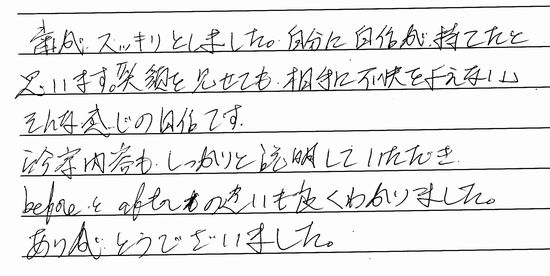 歯が、スッキリとしました。自分に自信が、持てたと
思います。笑顔を見せても、相手に不快を与えない」
そんな感じの自信です。
診察内容も、しっかりと説明していただき
beforeとafterもの違いも良くわかりました。
ありがとうございました。